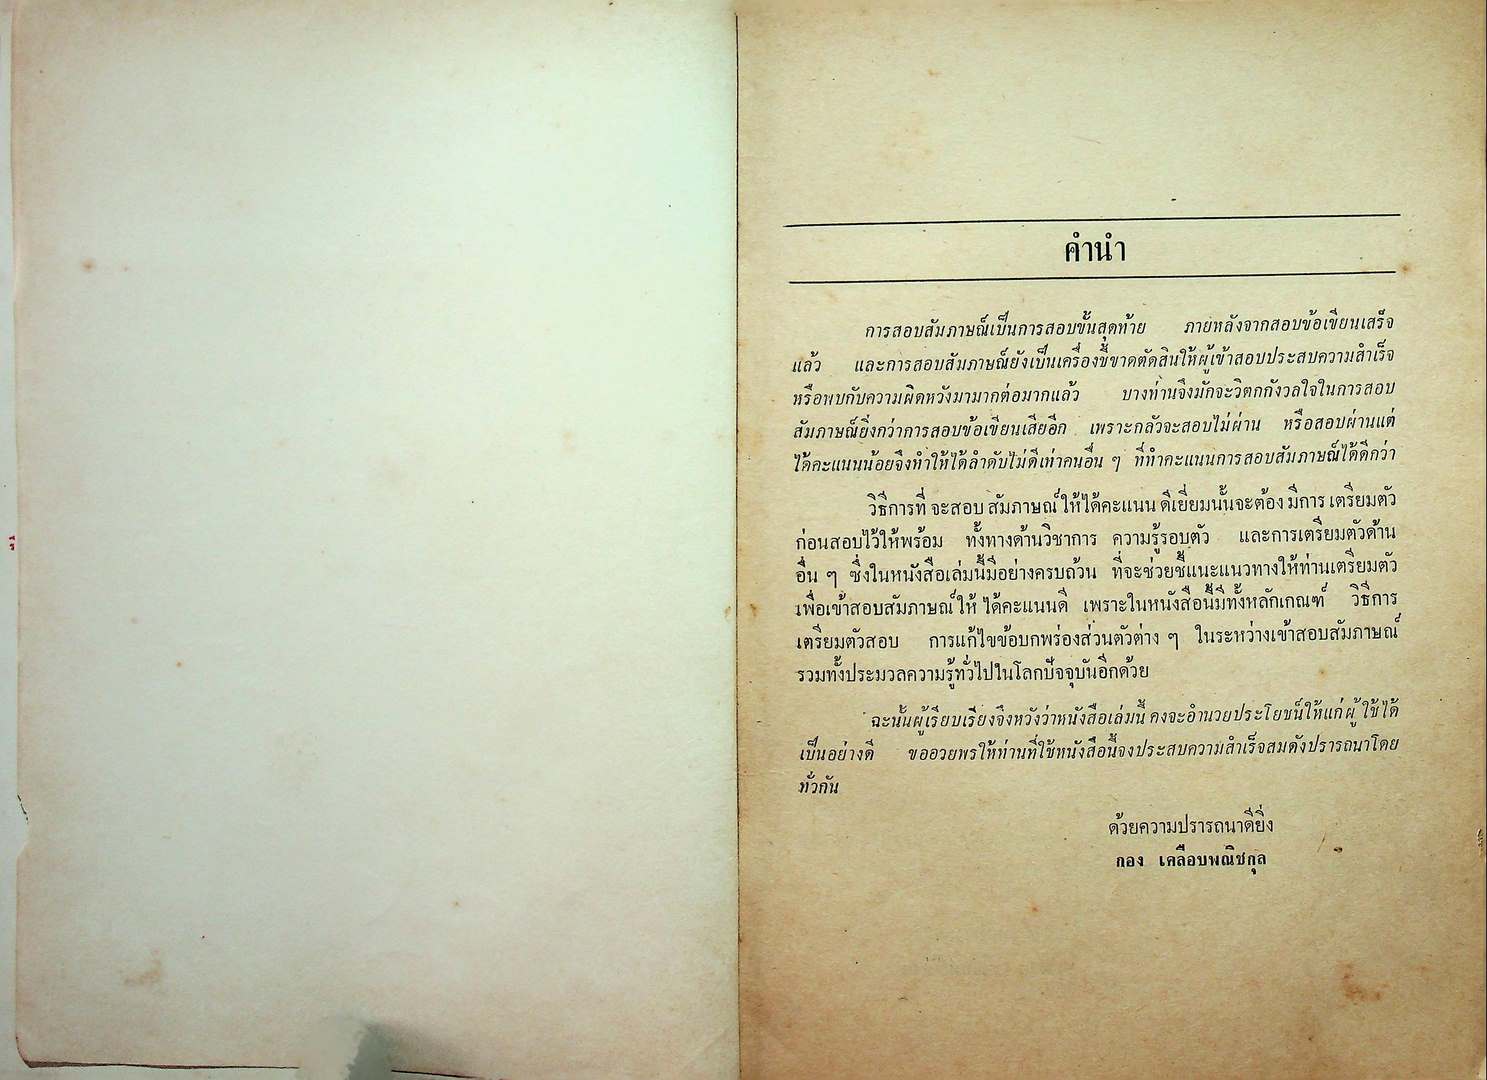 คำนำ
การสอบสัมภาษณ์เป็นการสอบขั้นสุดท้าย ภายหลังจากสอบข้อเขียนเสร็จ
แล้ว และการสอบสัมภาษณ์ยังเป็นเครื่องชี้ขาดตัดสินให้ผู้เข้าสอบประสบความสำเร็จ
หรือพบกับความผิดหวังมามากต่อมากแล้ว บางท่านจึงมักจะวิตกกังวลใจในการสอบ
สัมภาษณ์ยิ่งกว่าการสอบข้อเขียนเสียอีก เพราะกลัวจะสอบไม่ผ่าน หรือสอบผ่านแต่
ได้คะแนนน้อยจึงทำให้ได้ลำดับไม่ดีเท่าคนอื่น ๆ ที่ทำคะแนนการสอบสัมภาษณ์ได้ดีกว่า
วิธีการที่ จะสอบ สัมภาษณ์ ให้ได้คะแนน ดีเยี่ยมนั้นจะต้อง มีการ เตรียมตัว
ก่อนสอบไว้ให้พร้อม ทั้งทางด้านวิชาการ ความรู้รอบตัว และการเตรียมตัวด้าน
อื่น ๆ ซึ่งในหนังสือเล่มนี้มีอย่างครบถ้วน ที่จะช่วยชี้แนะแนวทางให้ท่านเตรียมตัว
เพื่อเข้าสอบสัมภาษณ์ให้ ได้คะแนนดี เพราะในหนังสือนี้มีทั้งหลักเกณฑ์ วิธีการ
เตรียมตัวสอบ การแก้ไขข้อบกพร่องส่วนตัวต่าง ๆ ในระหว่างเข้าสอบสัมภาษณ์
รวมทั้งประมวลความรู้ทั่วไปในโลกปัจจุบันอีกด้วย
ฉะนั้นผู้เรียบเรียงจึงหวังว่าหนังสือเล่มนี้ คงจะอำนวยประโยชน์ให้แก่ผู้ ใช้ได้
เป็นอย่างดี ขออวยพรให้ท่านที่ใช้หนังสือนี้จงประสบความสำเร็จสมดังปรารถนาโดย
ทั่วกัน
ด้วยความปรารถนาดียิ่ง
กอง เคลือบพณิชกุล